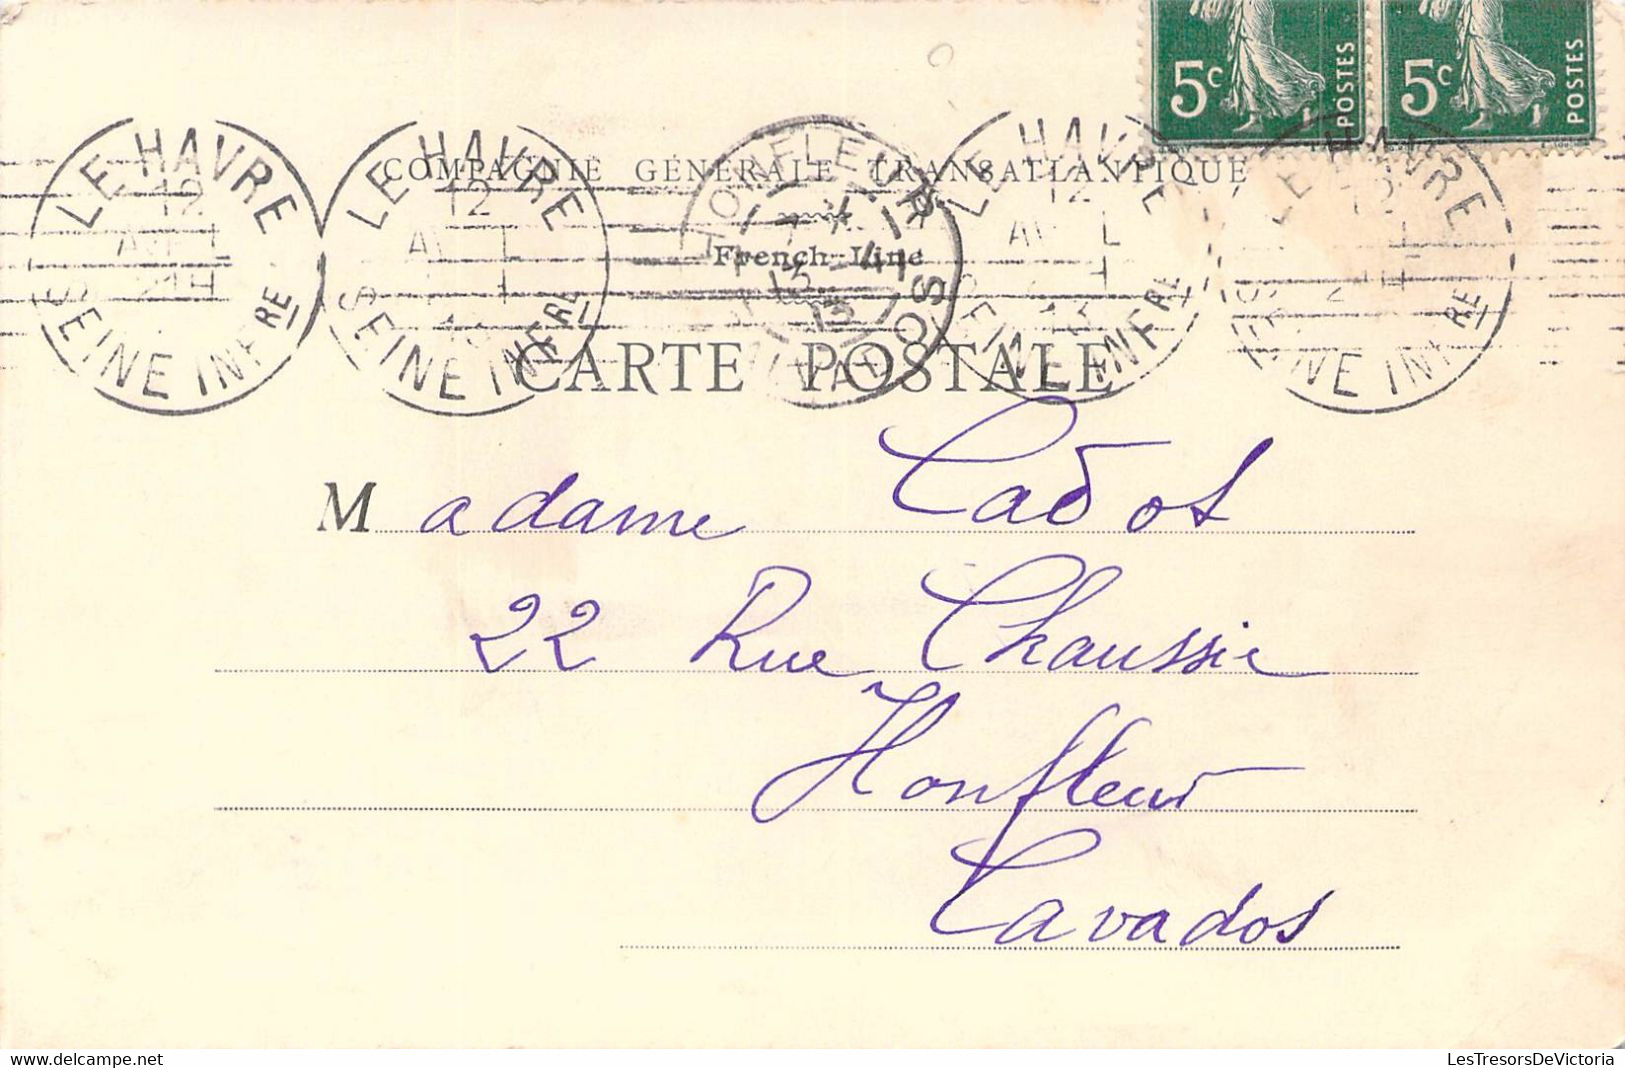 5c POSTES 5c POSTES
LE HAVRE 12 AVRIL SEINE INFRE
LE HAVRE 12 SEINE INFRE
HONFLEUR 13 CALVADOS
LE HAVRE 12 13 SEINE INFRE
LE HAVRE SEINE INFRE
COMPAGNIE GÉNÉRALE TRANSATLANTIQUE
French-Line
CARTE POSTALE
Madame Cadot
22 Rue Chaussie
Honfleur
Cavados
LesTresorsDeVictoria
delcampe.net